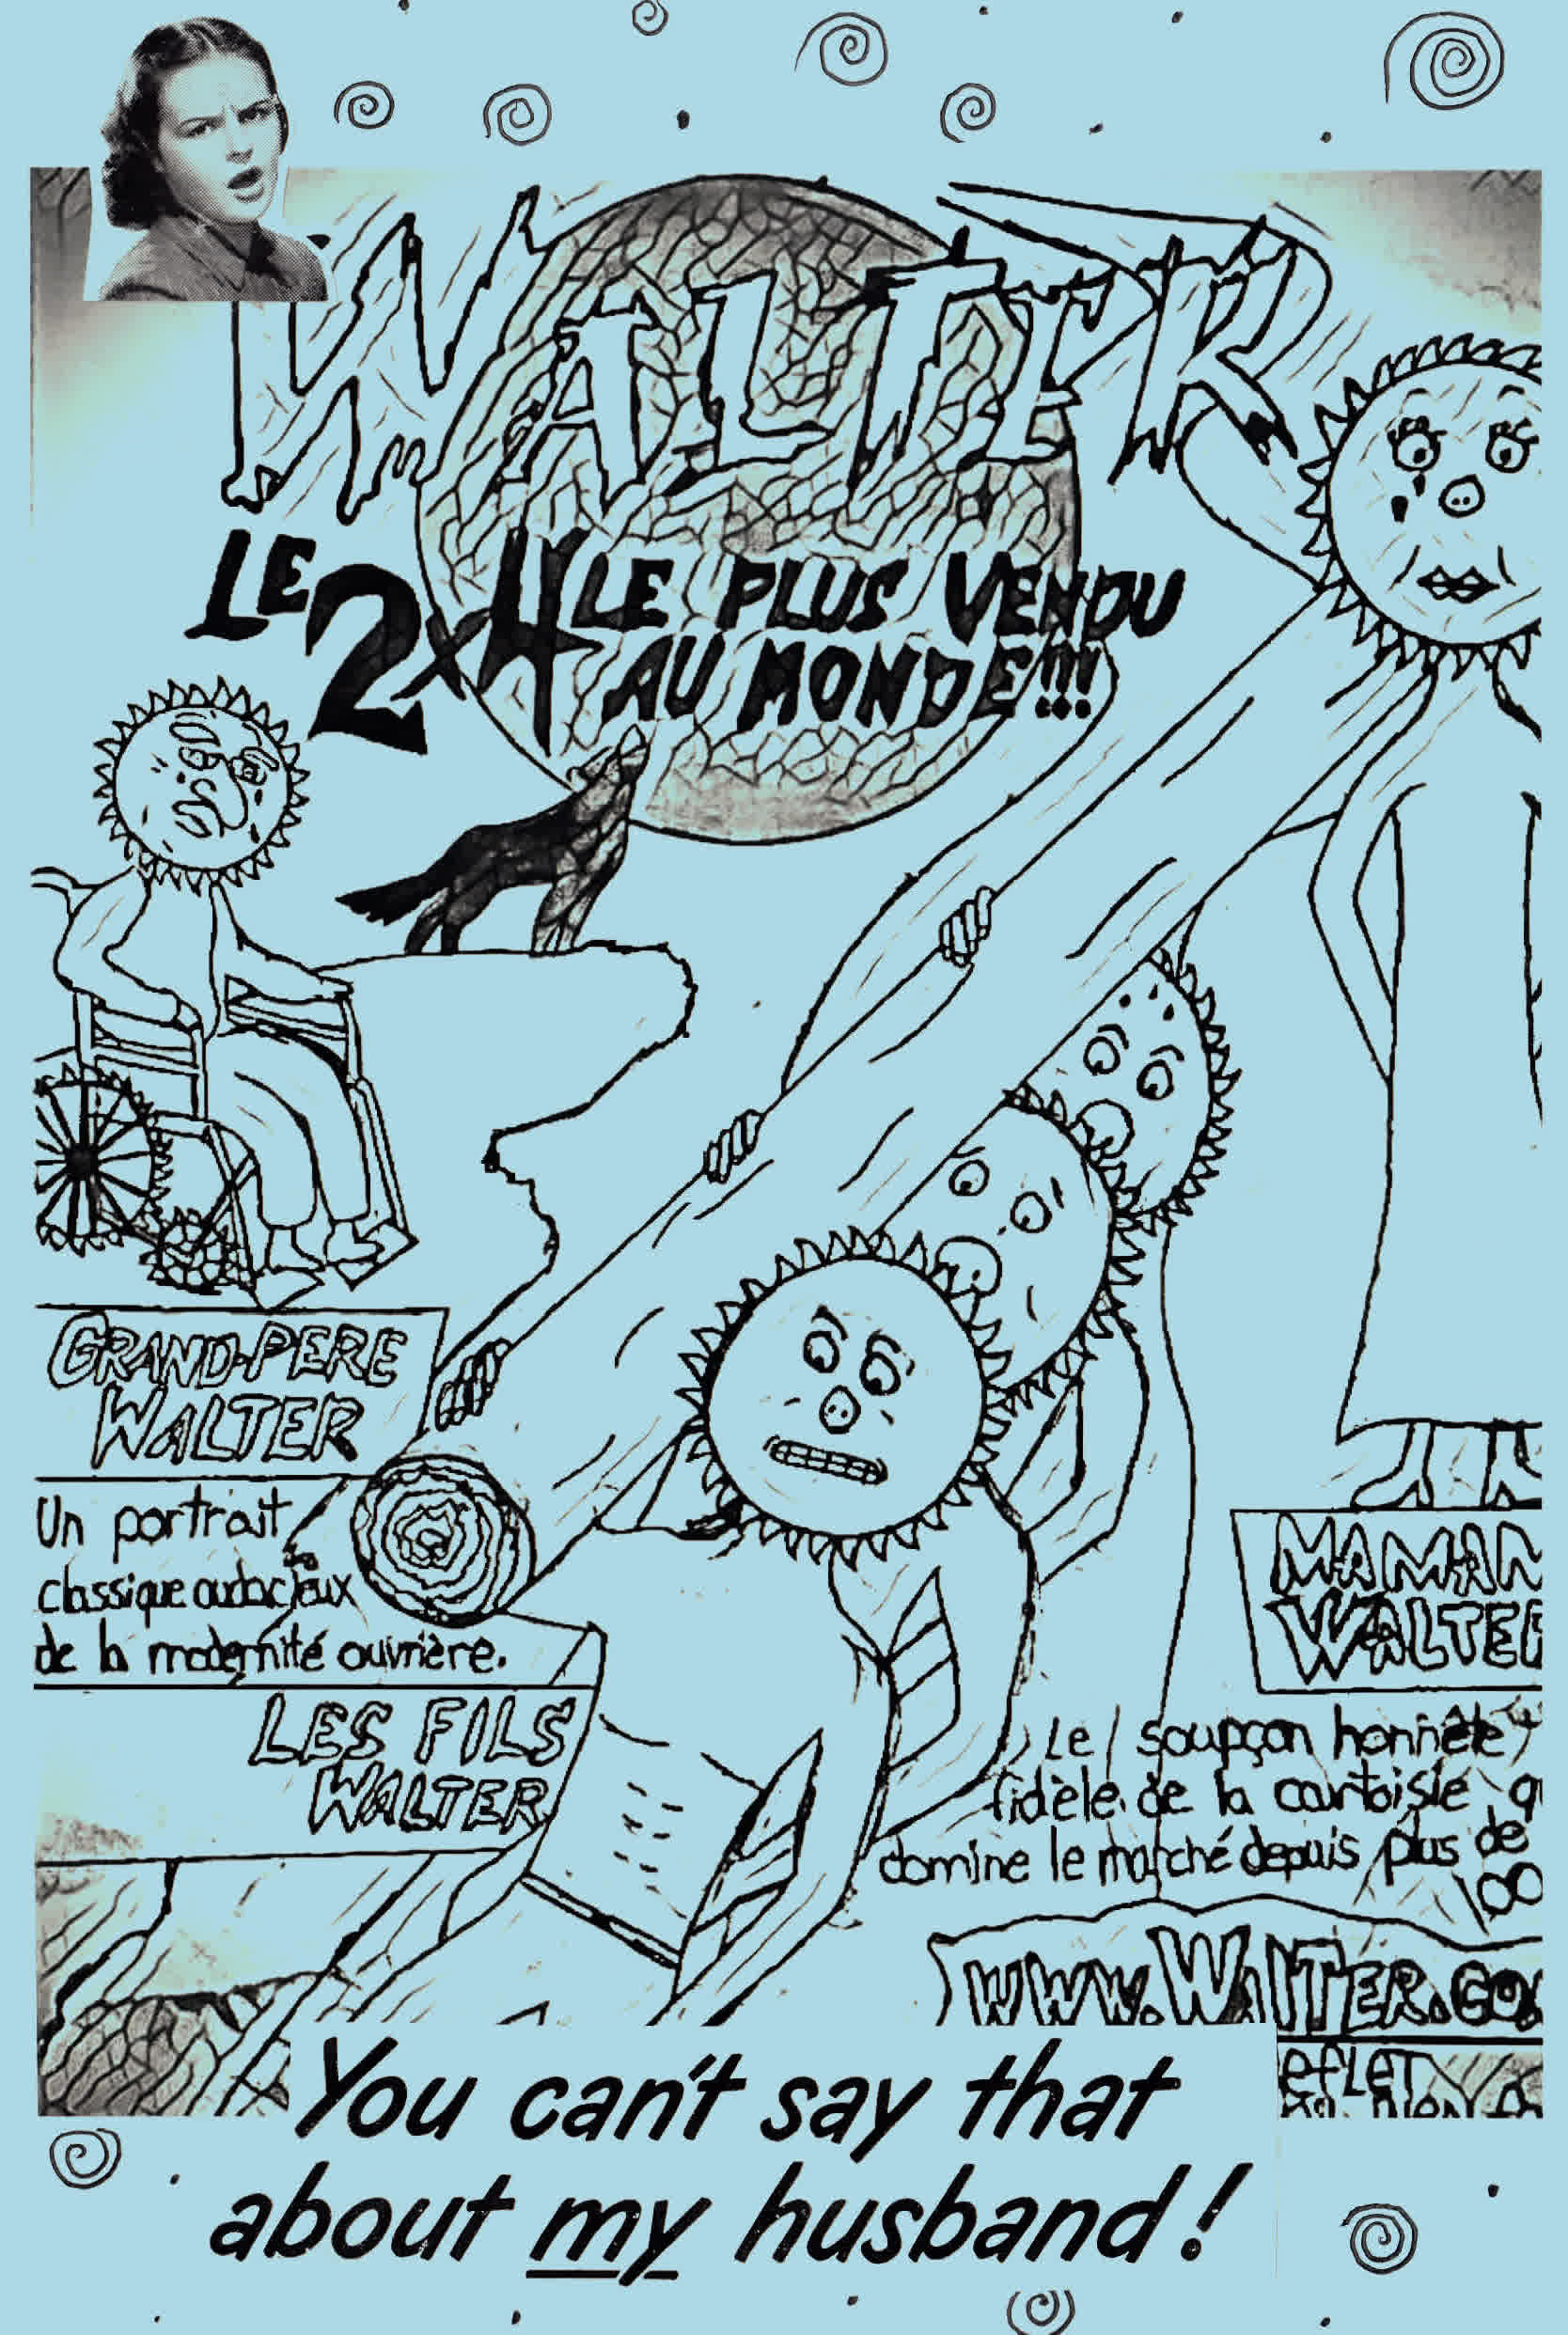 WALTER
LE 2x4 LE PLUS VENDU
AU MONDE!!!
GRAND-PERE
WALTER
Un portrait
classique audacieux
de la modernité ouvrière.
LES FILS
WALTER
MAMAN
WALTER
Le soupçon honnête
fidèle de la courtoisie q
domine le marché depuis plus de
100
www.WAlTER.CO
eFLET
You can't say that
about my husband!